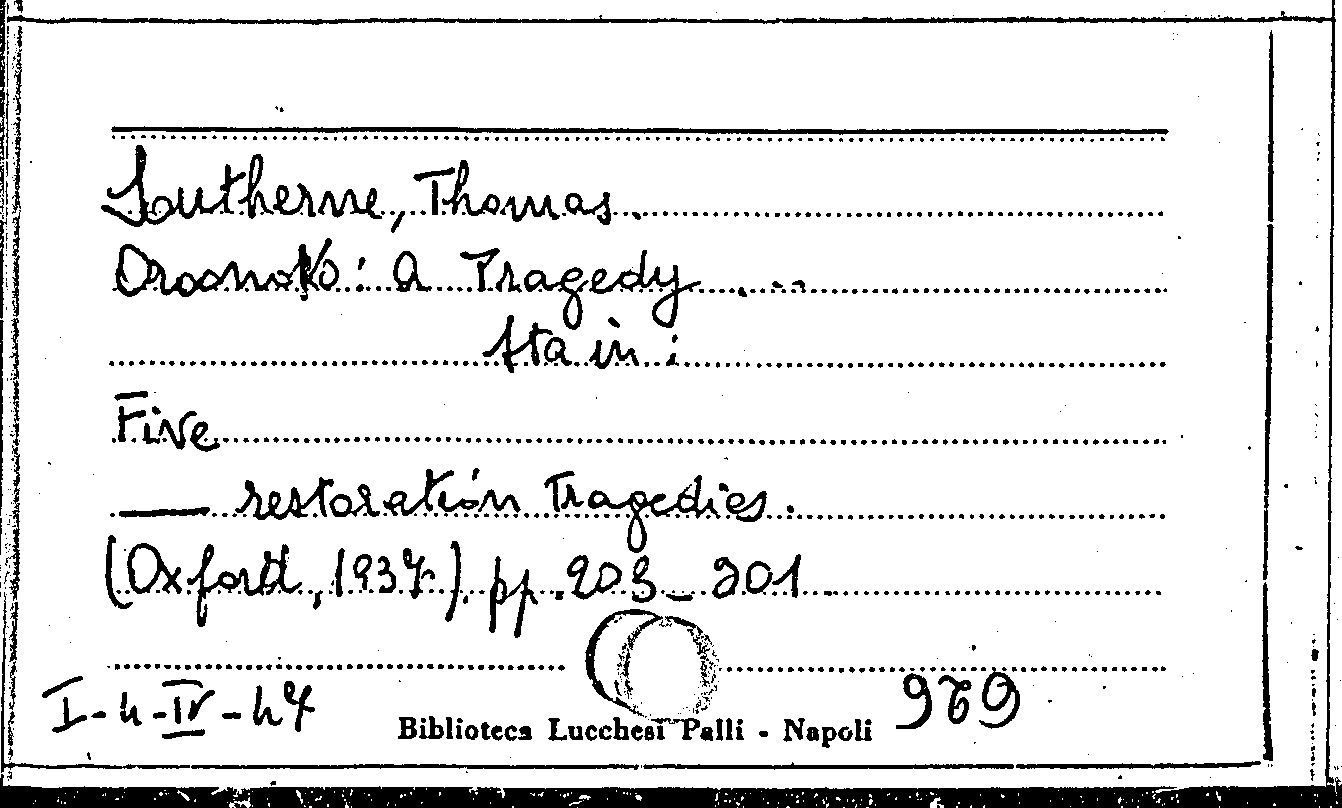 Southerne, Thomas.
Oroonoko: a Tragedy . . . .
sta in :
Five
— restoration Tragedies.
(Oxford, 1937). pp.
I-4-IV-47
Biblioteca Lucchesi Palli - Napoli